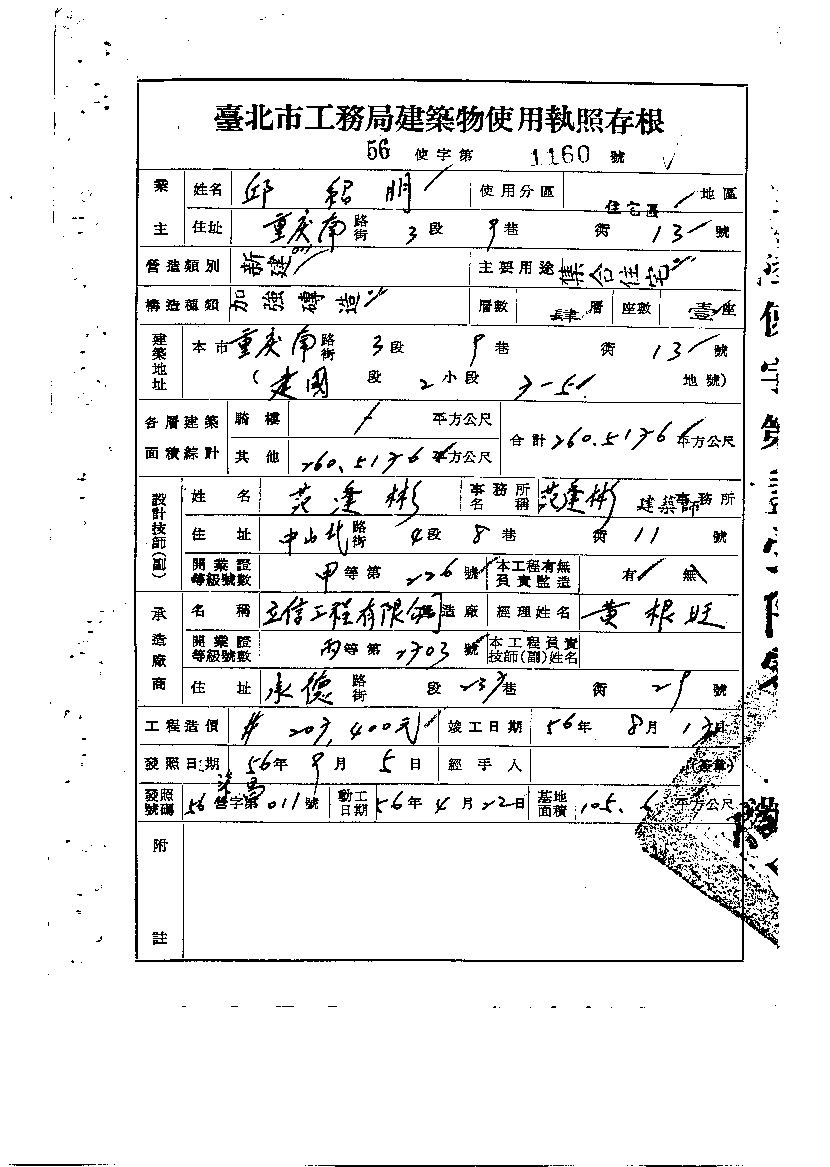 臺北市工務局建築物使用執照存根
56 使字第 1160 號
業主 姓名 邱紹明 使用分區 住宅區 地區
住址 重慶南路街 3段 9巷 衖 13號
營造類別 新建 主要用途 集合住宅
構造種類 加強磚造 層數 肆層 座數 壹座
建築地址 本市重慶南路街 3段 9巷 衖 13號
(建國段 2小段 地號)
各層建築面積綜計 騎樓 / 平方公尺 合計 平方公尺
其他 平方公尺
設計技師(副) 姓名 范逢彬 事務所名稱 范逢彬建築師事務所
住址 中山北路街 4段 8巷 衖 11號
開業證等級號數 甲等第226號 本工程有無負責監造 有 無
承造廠商 名稱 立信工程有限公司 營造廠 經理姓名 黃根旺
開業證等級號數 丙等第 號 本工程負責技師(副)姓名
住址 永德路街 段 巷 衖 29號
工程造價 竣工日期 56年 8月 日
發照日期 56年 9月 5日 經手人 (簽章)
發照號碼 56營字第011號 動工日期 56年 4月 22日 基地面積 105.6平方公尺
附註